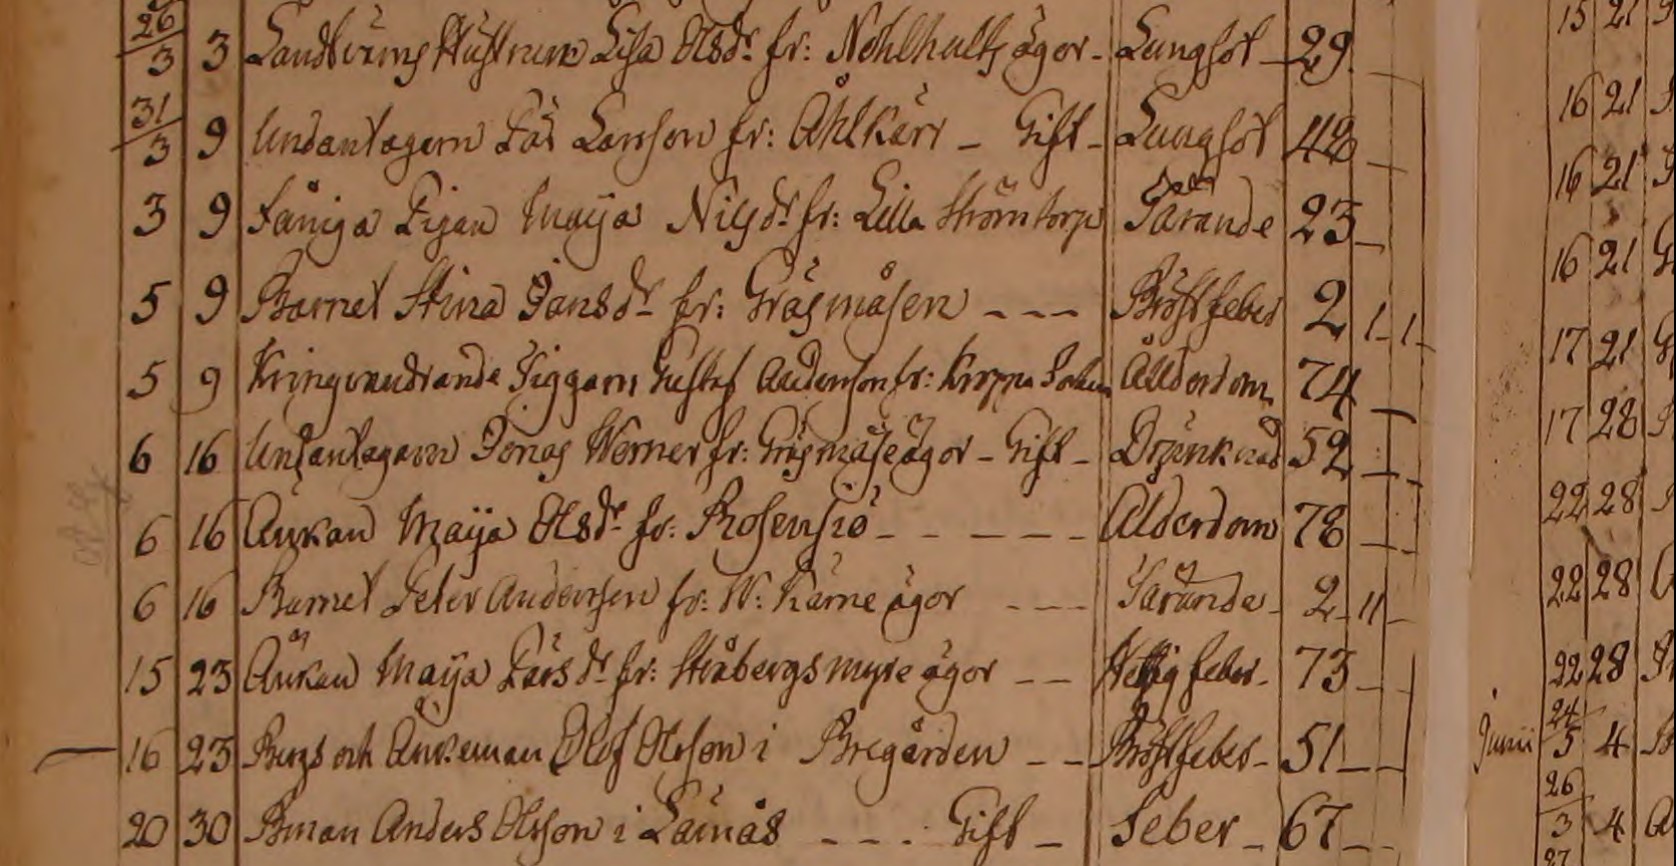 26/3 3 Landtvärns Hustrun Lisa Olsdr fr: Nohlhults ägor - Lungsot 29
31/3 9 Undantagarn Lars Larsson fr: Åhlkärr - Gift - Lungsot 48
3 9 Fåniga Pigan Maija Nilsdr fr: Lilla Strömtorp Tärande 23
5 9 Barnet Stina Jansdr fr: Gräsmåsen - - - Bröstfeber 2 1 1
5 9 Kringvandrande Tiggarn Gustaf Andersson fr: Kroppa Sokn Ålderdom 74
6 16 Undantagarn Jonas Werner fr: Gräsmåse ägor - Gift - Drunknad 52
6 16 Änkan Maija Olsdr fr: Rosensjö - - - - - Ålderdom 78
6 16 Barnet Peter Andersson fr: W: Kärne ägor - - - Tärande 2 11
15 23 Änkan Maija Larsdr fr: Stråbergsmyre ägor - - Hettig feber 73
16 23 Bergs och Änkeman Olof Olsson i Bregården - - Bröstfeber 51
20 30 Bman Anders Olsson i Lämås - - - Gift - Feber 67
15 21
16 21
16 21
16 21
17 21
17 28
22 28
22 28
22 28
Junii 24/5 4
26/3 4
27